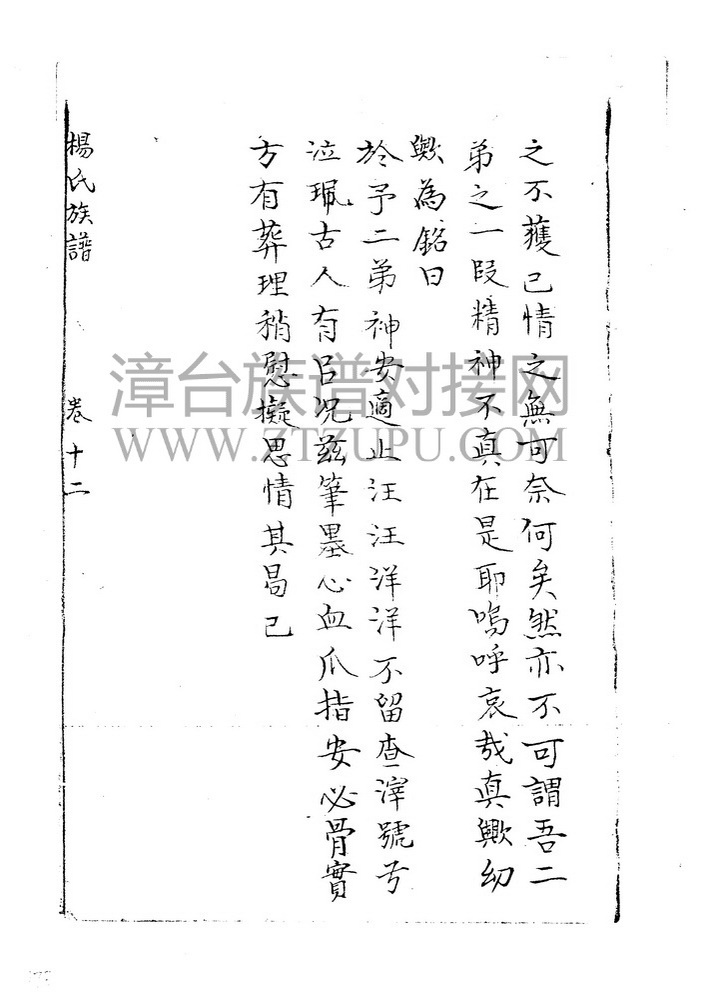 之不獲已情之無可奈何矣然亦不可謂吾二
弟之一段精神不真在是耶嗚呼哀哉真歟幻
歟為銘曰
於予二弟神安適止汪汪洋洋不留查滓號兮
泣珮古人有吕况兹筆墨心血爪指安必骨實
方有葬理稍慰擬思情其曷已
楊氏族譜
卷十二
漳台族谱对接网
WWW.ZTZUPU.COM